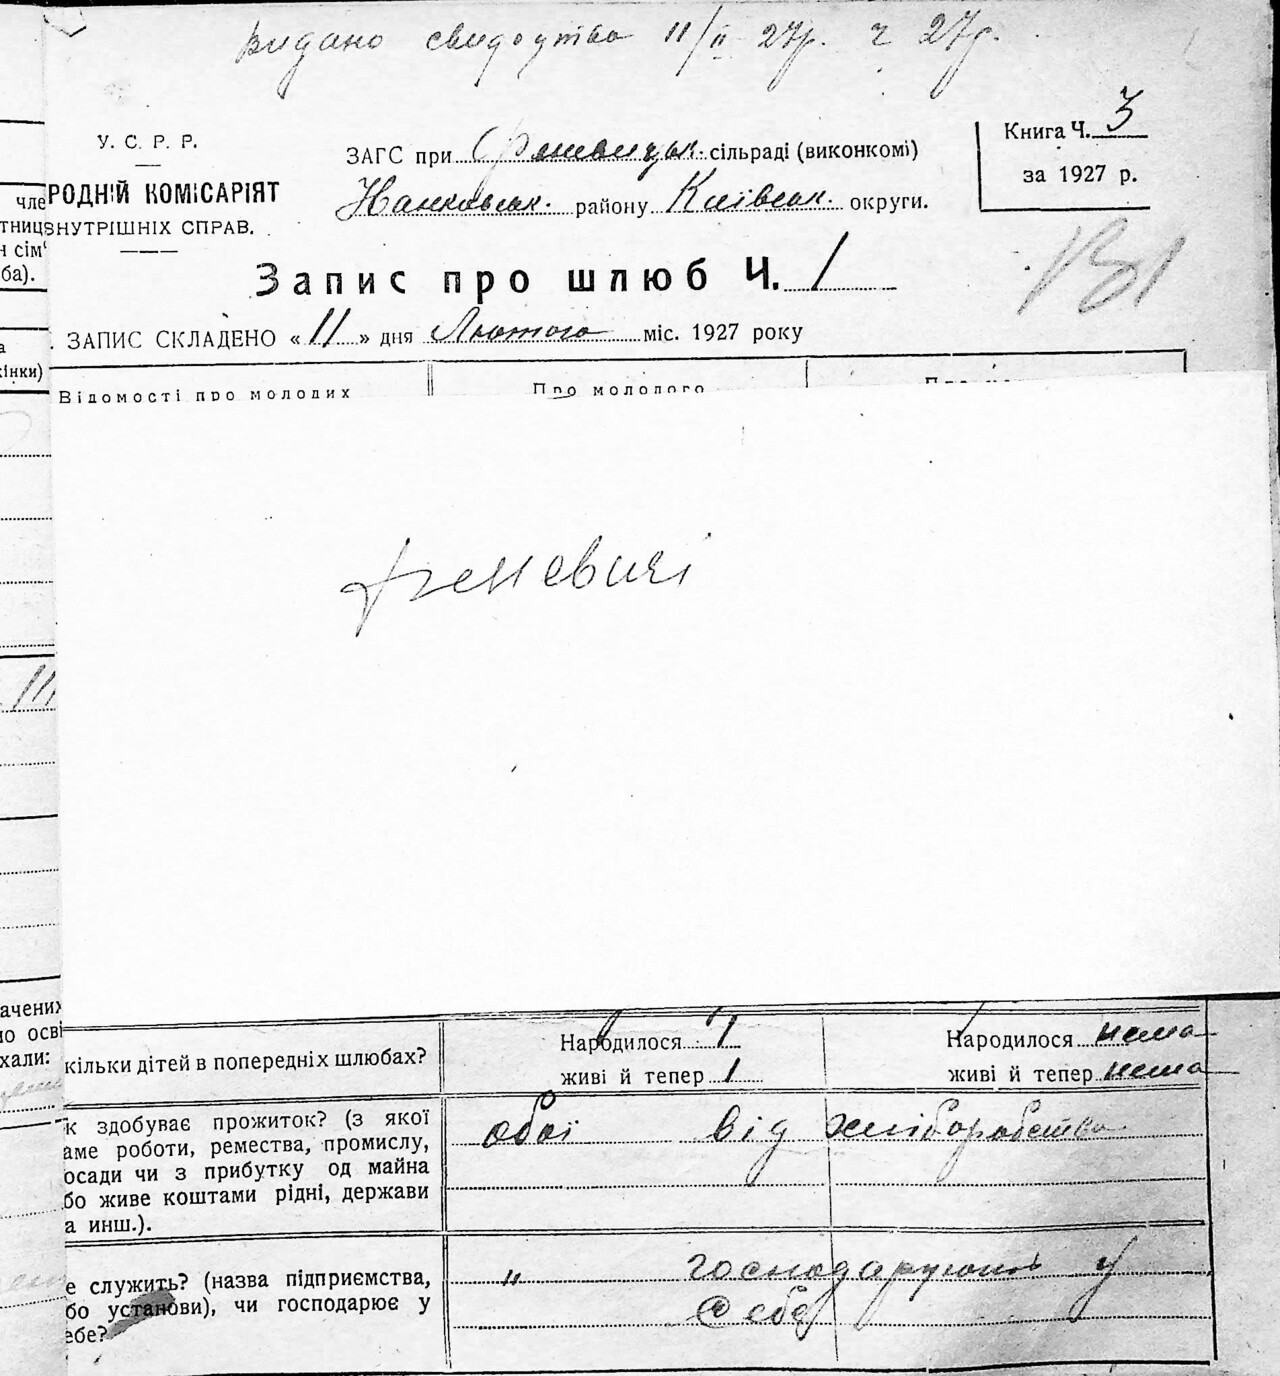 видано свидоцтво 11/II 27р. ч 27р.
У. С. Р. Р.
РОДНІЙ КОМІСАРІЯТ
ВНУТРІШНІХ СПРАВ.
ЗАГС при сільраді (виконкомі)
району Київськ. округи.
Книга Ч. 3
за 1927 р.
Запис про шлюб Ч. 1
ЗАПИС СКЛАДЕНО « 11 » дня Лютого міс. 1927 року
чле
тниц
н сім'
ба).
а
інки)
Відомості про молодих
Про молодого
III
ачених
но осві
хали:
кільки дітей в попередніх шлюбах?
Народилося 1
живі й тепер 1
Народилося нема
живі й тепер нема
к здобуває прожиток? (з якої
аме роботи, ремества, промислу,
осади чи з прибутку од майна
бо живе коштами рідні, держави
а инш.).
обої від хліборобства
е служить? (назва підприємства,
бо установи), чи господарює у
ебе?
" господарують у
себе